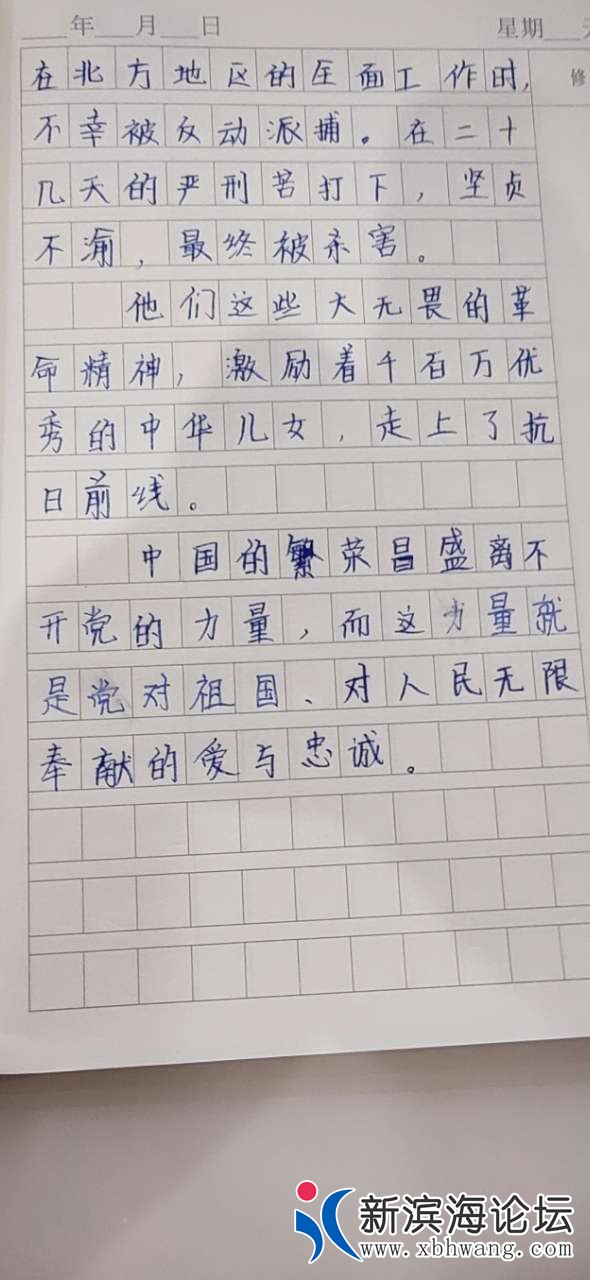 年 月 日 星期
修
在北方地区的全面工作时,
不幸被反动派捕。在二十
几天的严刑苦打下，坚贞
不渝，最终被杀害。
他们这些大无畏的革
命精神，激励着千百万优
秀的中华儿女，走上了抗
日前线。
中国的繁荣昌盛离不
开党的力量，而这力量就
是党对祖国、对人民无限
奉献的爱与忠诚。
新滨海论坛
www.xbhwang.com